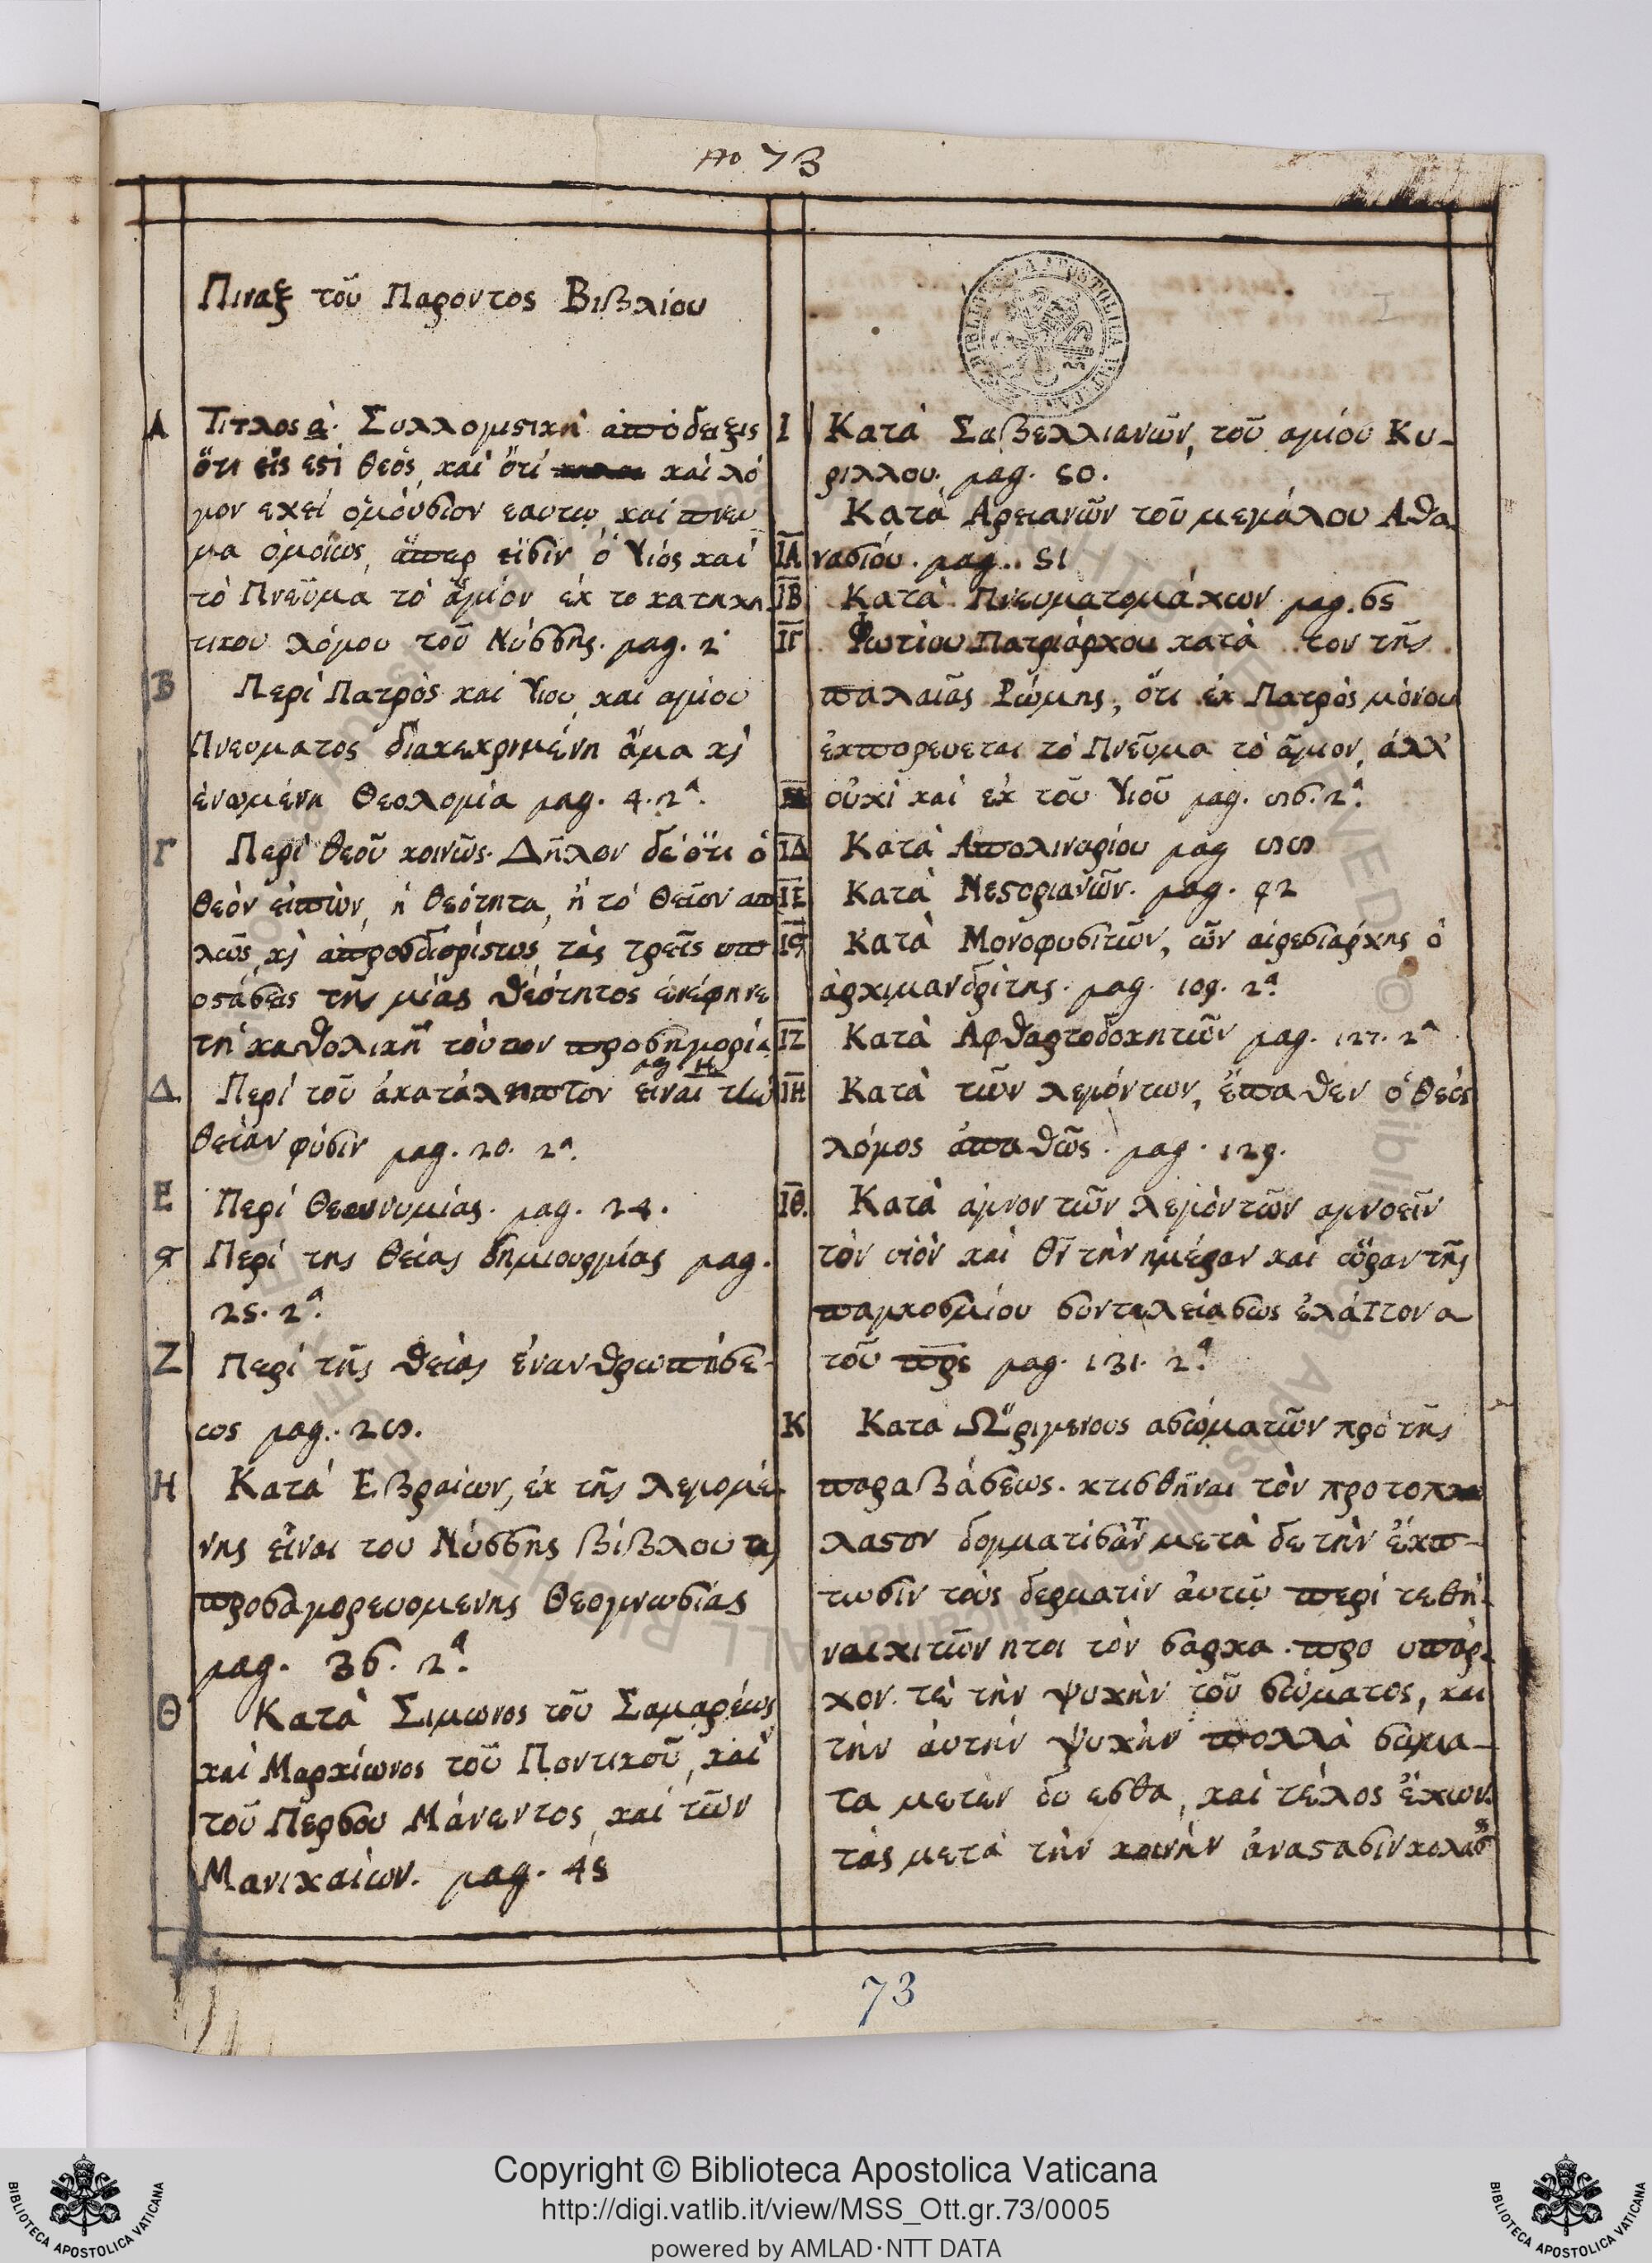 Aº 73
Πιναξ τοῦ Παροντος Βιβλίου
Α Τιτλος ά. Συλλογιστικὴ ἀπόδειξις
ὅτι εἷς εστὶ θεὸς, καὶ ὅτι καὶ λό
γον εχεί ὁμόυσιον εαυτω, καὶ πνευ
μα ὁμοίως, ἅπερ εἰσὶν ὁ Υἱὸς καὶ
τὸ Πνεῦμα τὸ ἅγιόν ἐκ το κατηχη
τικου λόγου τοῦ Νύσσης. pag. 2
Β Περὶ Πατρὸς καὶ Υιου, καὶ αγίου
Πνευματος διακεκριμένη ἅμα κὶ
ἑνωμένη Θεολογία pag. 4. 2ª.
Γ Περὶ θεοῦ κοινῶς. Δῆλον δὲ ὅτι ὁ
θεὸν εἰπὼν, ἡ θεότητα, ἢ τὸ Θεῖον απ
λῶς, κὶ ἀπροσδιορίστως, τὰς τρεῖς υπ
οστάσεις τῆς μίας θεότητος ἐνέφηνε
τῇ καθολικῇ τούτων προσηγορίᾳ
pag. 14
Δ. Περὶ τοῦ ἀκατάληπτον εἶναι τὴν
θείαν φύσιν pag. 20. 2ª.
Ε Περὶ Θεωνυμίας. pag. 24.
ϛ Περὶ της θείας δημιουργίας pag.
25. 2ª.
Ζ Περὶ τῆς θείας ἐνανθρωπήσε-
ως pag. 2ϛ.
Η Κατὰ Εβραίων, ἐκ τῆς λεγομέ-
νης εἶναι του Νύσσης βίβλου τῆς
προσαγορευομενης Θεογνωσίας
pag. 36. 2ª.
Θ Κατὰ Σιμωνος τοῦ Σαμαρέως
καὶ Μαρκίωνος τοῦ Ποντικοῦ, καὶ
τοῦ Πέρσου Μάνεντος, καὶ τῶν
Μανιχαίων. pag. 45
Ι Κατὰ Σαβελλιανῶν, τοῦ αγίου Κυ-
ριλλου. pag. 50.
Κατὰ Αρειανῶν τοῦ μεγάλου Αθα
ΙΑ νασίου. pag.. 51
ΙΒ Κατὰ Πνευματομάχων pag. 65
ΙΓ Φωτίου Πατριάρχου κατὰ τον τῆς
παλαιᾶς Ρώμης, ὅτι ἐκ Πατρὸς μόνου
ἐκπορευεται τὸ Πνεῦμα τὸ ἅγιον, ἀλλ'
οὐχὶ καὶ ἐκ τοῦ Υιοῦ pag. ϛ6. 2ª.
ΙΔ Κατὰ Απολιναρίου pag ϛϛ
ΙΕ Κατὰ Νεστοριανῶν. pag. 92
Ιϛ Κατὰ Μονοφυσιτῶν, ὧν αἱρεσιάρχης ὁ
ἀρχιμανδρίτης. pag. 109. 2ª.
ΙΖ Κατὰ Αφθαρτοδοκητῶν pag. 127. 2ª
ΙΗ Κατὰ τῶν λεγόντων, ἔπαθεν ὁ θεός
λόγος ἀπαθῶς. pag. 129.
ΙΘ. Κατὰ αγνοητῶν λεγόντῶν αγνοεῖν
τὸν υἱὸν καὶ θν̄ τὴν ἡμέραν καὶ ὥραν τῆς
παγκοσμίου συντελείας ὡς ἐλάττονα
τοῦ πρς pag. 131. 2ª.
Κ Κατα Ωριγενους ασώματῶν πρὸ τῆς
παραβάσεως. κτισθῆναι τὸν προτοπ
λαστον δογματίσαντ μετὰ δε τὴν ἐκπ-
τωσίν τοὺς δερματίν ἀυτῷ περί τεθῆ-
ναι χιτῶν ητοι τὸν σαρκα. προ υπαρ-
χον τὲ τὴν ψυχὴν τοῦ σώματος, και
τὴν ἀυτὴν ψυχὴν πολλὰ σώμα-
τα μετεν δυ εσθα, καὶ τέλος ἔχων
τὰς μετὰ τὴν κοινὴν ἀναστασιν κολάσ
73
Copyright © Biblioteca Apostolica Vaticana
http://digi.vatlib.it/view/MSS_Ott.gr.73/0005
powered by AMLAD·NTT DATA
BIBLIOTECA APOSTOLICA VATICANA
BIBLIOTECA APOSTOLICA VATICANA